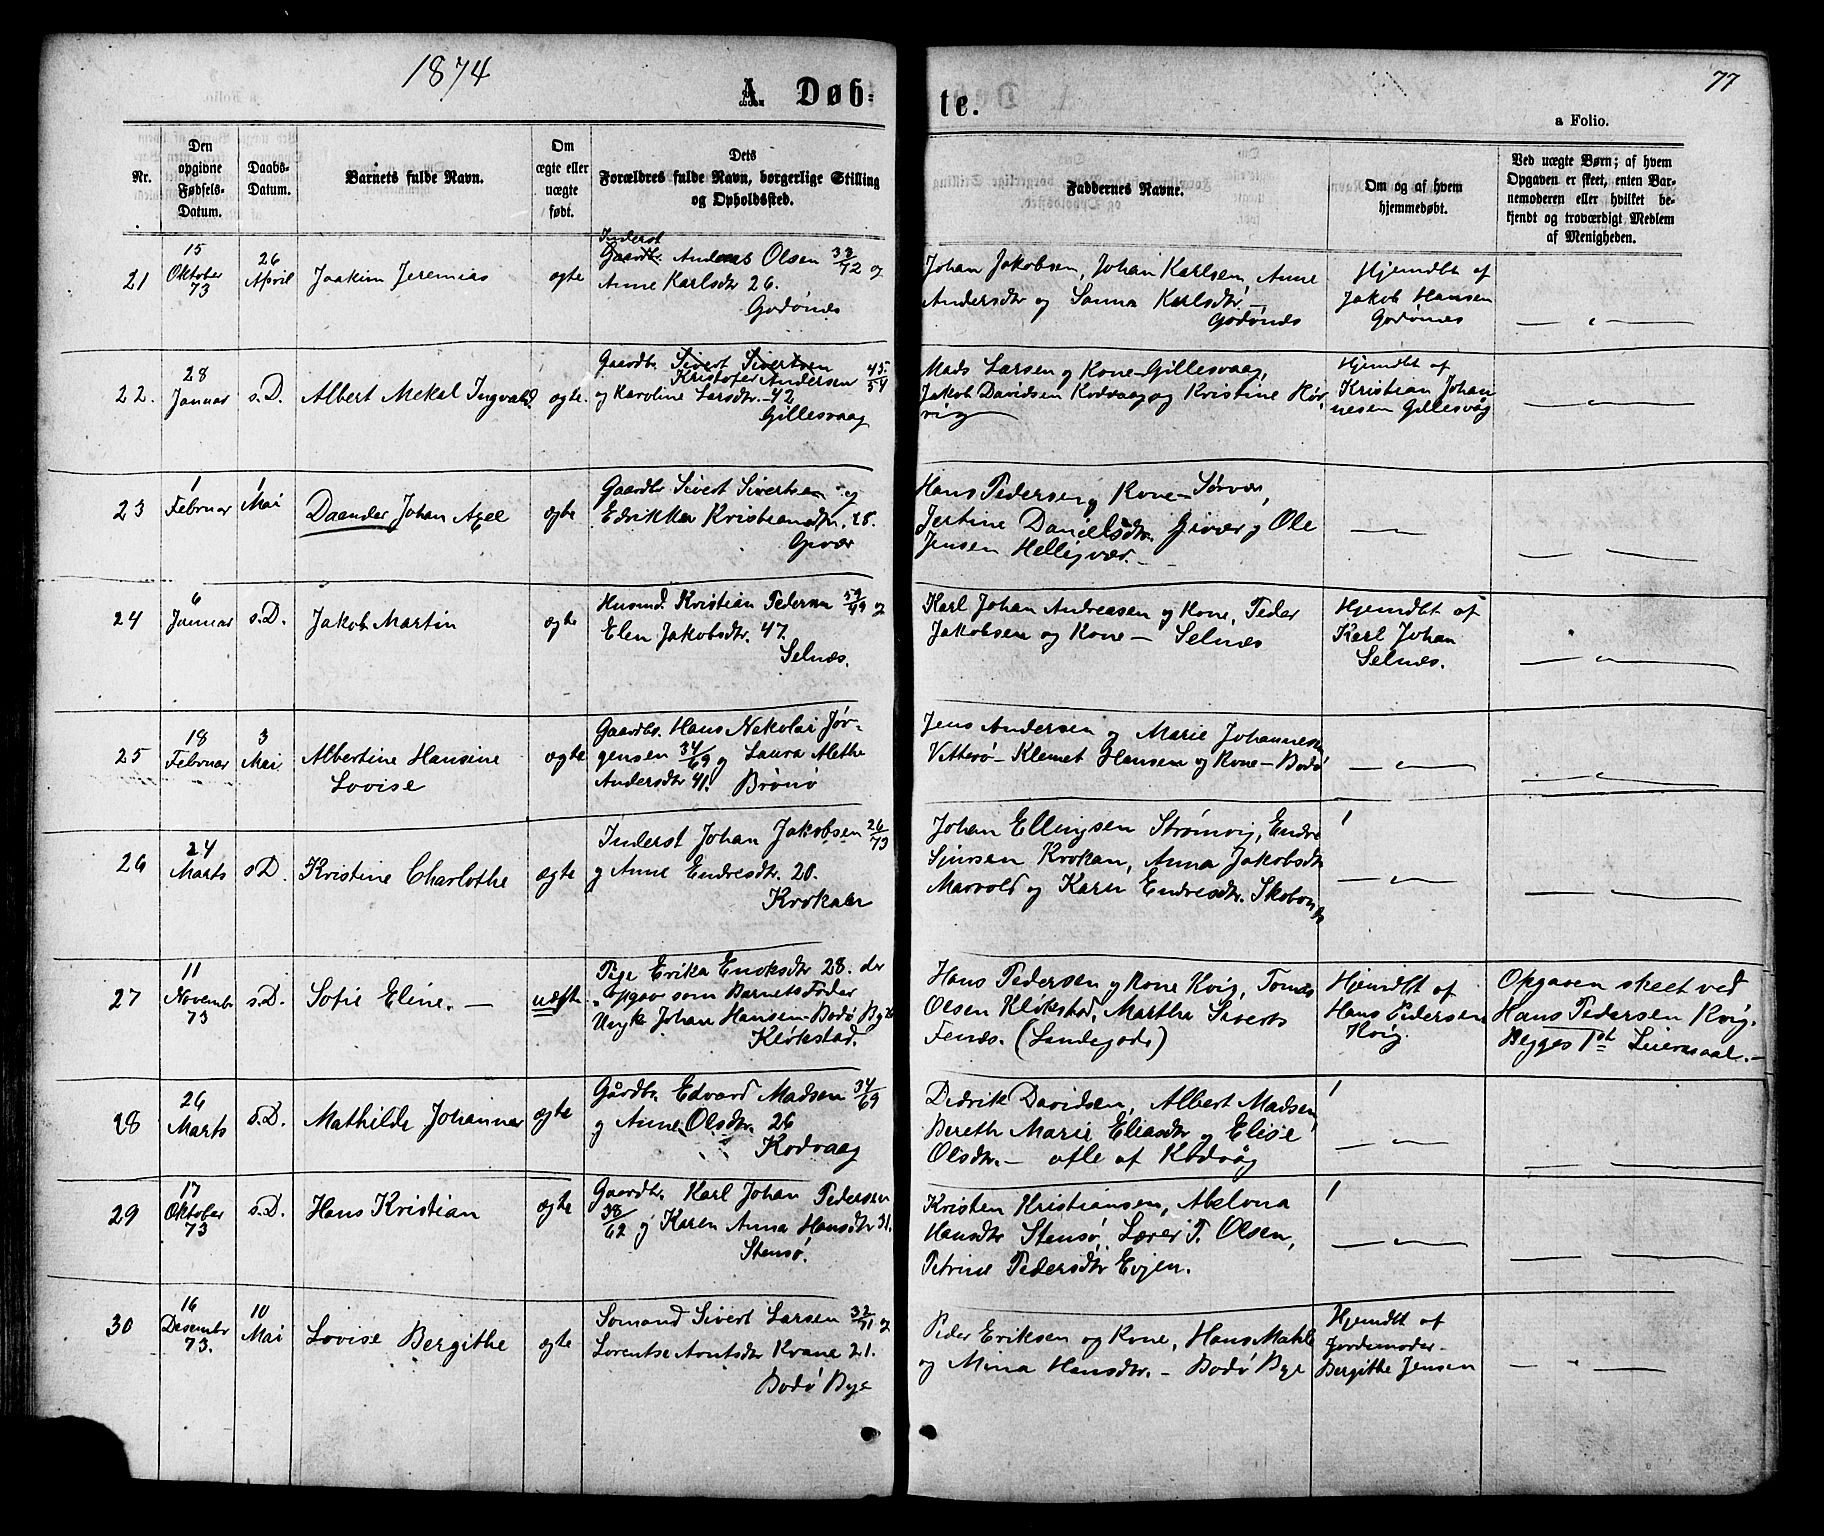 1874
77
A. Døb-
te.
a Folio.
Nr.
Den
opgivne
Fødsels-
Datum.
Daabs-
Datum.
Barnets fulde Navn.
Om
ægte eller
uægte
født.
Dets
Forældres fulde Navn, borgerlige Stilling
og Opholdssted.
Faddernes Navne.
Om og af hvem
hjemmedøbt.
Ved uægte Børn; af hvem
Opgaven er skeet, enten Bar-
nemoderen eller hvilket be-
kjendt og troværdigt Medlem
af Menigheden.
21
15
Oktober
73
26
April
Joakim Jeremias
ægte
Inderst
Gaardb. Andreas Olsen 33/72 og
Anne Karlsdtr 26.
Godønes
Johan Jakobsen, Johan Karlsen, Anne
Andersdtr og Sanna Karlsdtr
Godønes
Hjemdbt af
Jakob Hansen
Godønes
22.
28
Januar
s.D.
Albert Mekal Ingvald
ægte.
Gaardb. Sivert Sivertsen 45/54
Kristofer Andersen
og Karoline Larsdtr. 42
Gillesvaag
Mads Larsen og Kone Gillesvaag,
Jakob Davidsen Kodvaag og Kristine Kør
vig
Hjemdbt af
Kristian Johan
nesen Gillesvåg
23
1
Februar
1
Mai
Daender Johan Axel
ægte
Gaardbr Sivert Sivertsen og
Edrikke Kristiansdtr. 28.
Givær
Hans Pedersen og Kone Sørvær,
Jertine Danielsdtr. Givær og Ole
Jensen Helligvær.
24
6
Januar
s.D.
Jakob Martin
ægte
Husmd. Kristian Pedersen 59/49 og
Elen Jakobsdtr. 47.
Selnæs.
Karl Johan Andreasen og Kone, Peder
Jakobsen og Kone Selnæs
Hjemdbt af
Karl Johan
Selnæs.
25
18
Februar
3
Mai
Albertine Hansine
Lovise
ægte
Gaardbr. Hans Nekolai Jør-
gensen 34/69 og Laura Alethe
Andersdtr 41. Brønø
Jens Andersen og Marie Johannesen
Vitterø Klemet Hansen og Kone Bodø
26
24
Marts
s.D.
Kristine Charlothe
ægte
Inderst Johan Jakobsen 26/73
og Anne Endresdtr. 20.
Krokaer
Johan Ellingsen Strømvig, Endre
Sjursen Krokan, Anna Jakobsdtr
Marvold og Karen Endresdtr.
27
11
Novembr
73
s.D.
Sofie Eline.
uægte
Pige Erika Enoksdtr 28. der
opgav som Barnets Fader
Ungk Johan Hansen Bodø By
Kløkstad.
Hans Pedersen og Kone Kvig, Tomas
Olsen Kløkstad, Marthe Siverts
Fenæs. (Landegode)
Hjemdbt af
Hans Pedersen
Kvig.
Opgaven skeet ved
Hans Pedersen Kvig.
Begges 1st Leiermaal.
28
26
Marts
s.D.
Mathilde Johanna
ægte
Gårdbr. Edvard Madsen 34/69
og Anne Olsdtr. 26
Kodvaag
Didrik Davidsen, Albert Madsen,
Bereth Marie Eliasdtr og Elise
Olsdtr. alle af Kodvåg
29
17
Oktober
73
s.D.
Hans Kristian
ægte
Gaardbr. Karl Johan Pedersen
38/62 og Karen Anna Hansdtr 31.
Stensø.
Kristen Kristiansen, Abelona
Hansdtr Stensø, Lærer T. Olsen,
Petrine Pedersdtr Evjen.
30
16
Desembr
73.
10
Mai
Lovise Bergithe
ægte
Sømand Sivert Larsen 32/71 og
Lorentse Arntsdtr Kvane 21.
Bodø By
Peder Eriksen og Kone, Hans
og Mina Hansdtr. Bodø By
Hjemdbt af
Jordemoder
Bergithe Jensen